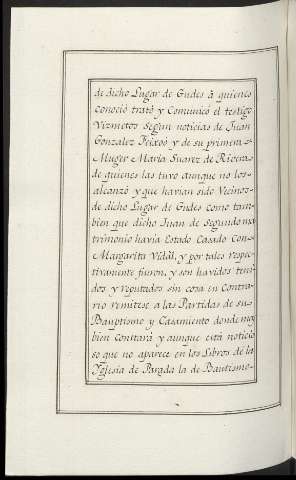 de dicho Lugar de Gudes à quienes
conoció trató y Comunicó el testigo
Viznietos Segun noticias de Juan
Gonzalez Feixoó y de su primera
Muger Maria Suarez de Rivera
de quienes las tuvo aunque no los
alcanzó y que havian sido Vecinos
de dicho Lugar de Gudes como tam
bien que dicho Juan de Segundo ma
trimonio havia Estado Casado Con
Margarita Vidal, y por tales respec
tivamente fueron, y son havidos teni
dos y reputados sin cosa en Contra
rio remitese a las Partidas de su
Bauptismo y Casamiento donde muy
bien Constará y aunque está noticio
so que no aparece en los Libros de la
Yglesia de Parada la de Bautismo